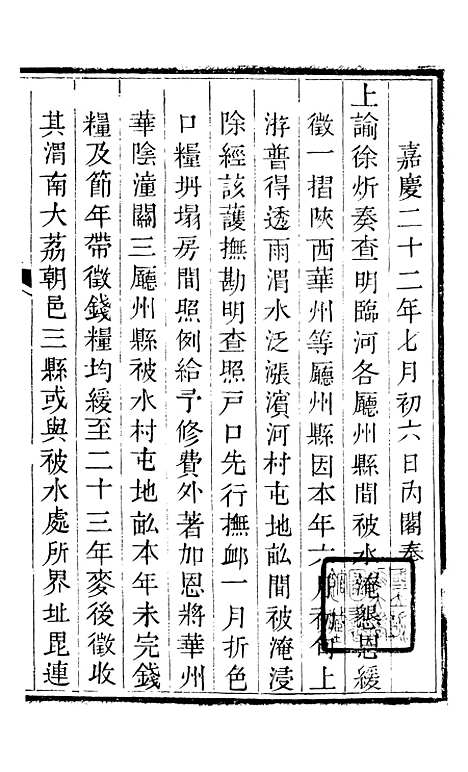 嘉慶二十二年七月初六日內閣奏
上諭徐炘奏查明臨河各廳州縣間被水淹懇恩緩
徵一摺陝西華州等廳州縣因本年六月初旬上
游普得透雨渭水泛漲濱河村屯地畝間被淹浸
除經該護撫勘明查照戸口先行撫䘏一月折色
口糧坍塌房間照例給予修費外著加恩將華州
華陰潼關三廳州縣被水村屯地畝本年未完錢
糧及節年帶徵錢糧均緩至二十三年麥後徵收
其渭南大荔朝邑三縣或與被水處所界址毘連